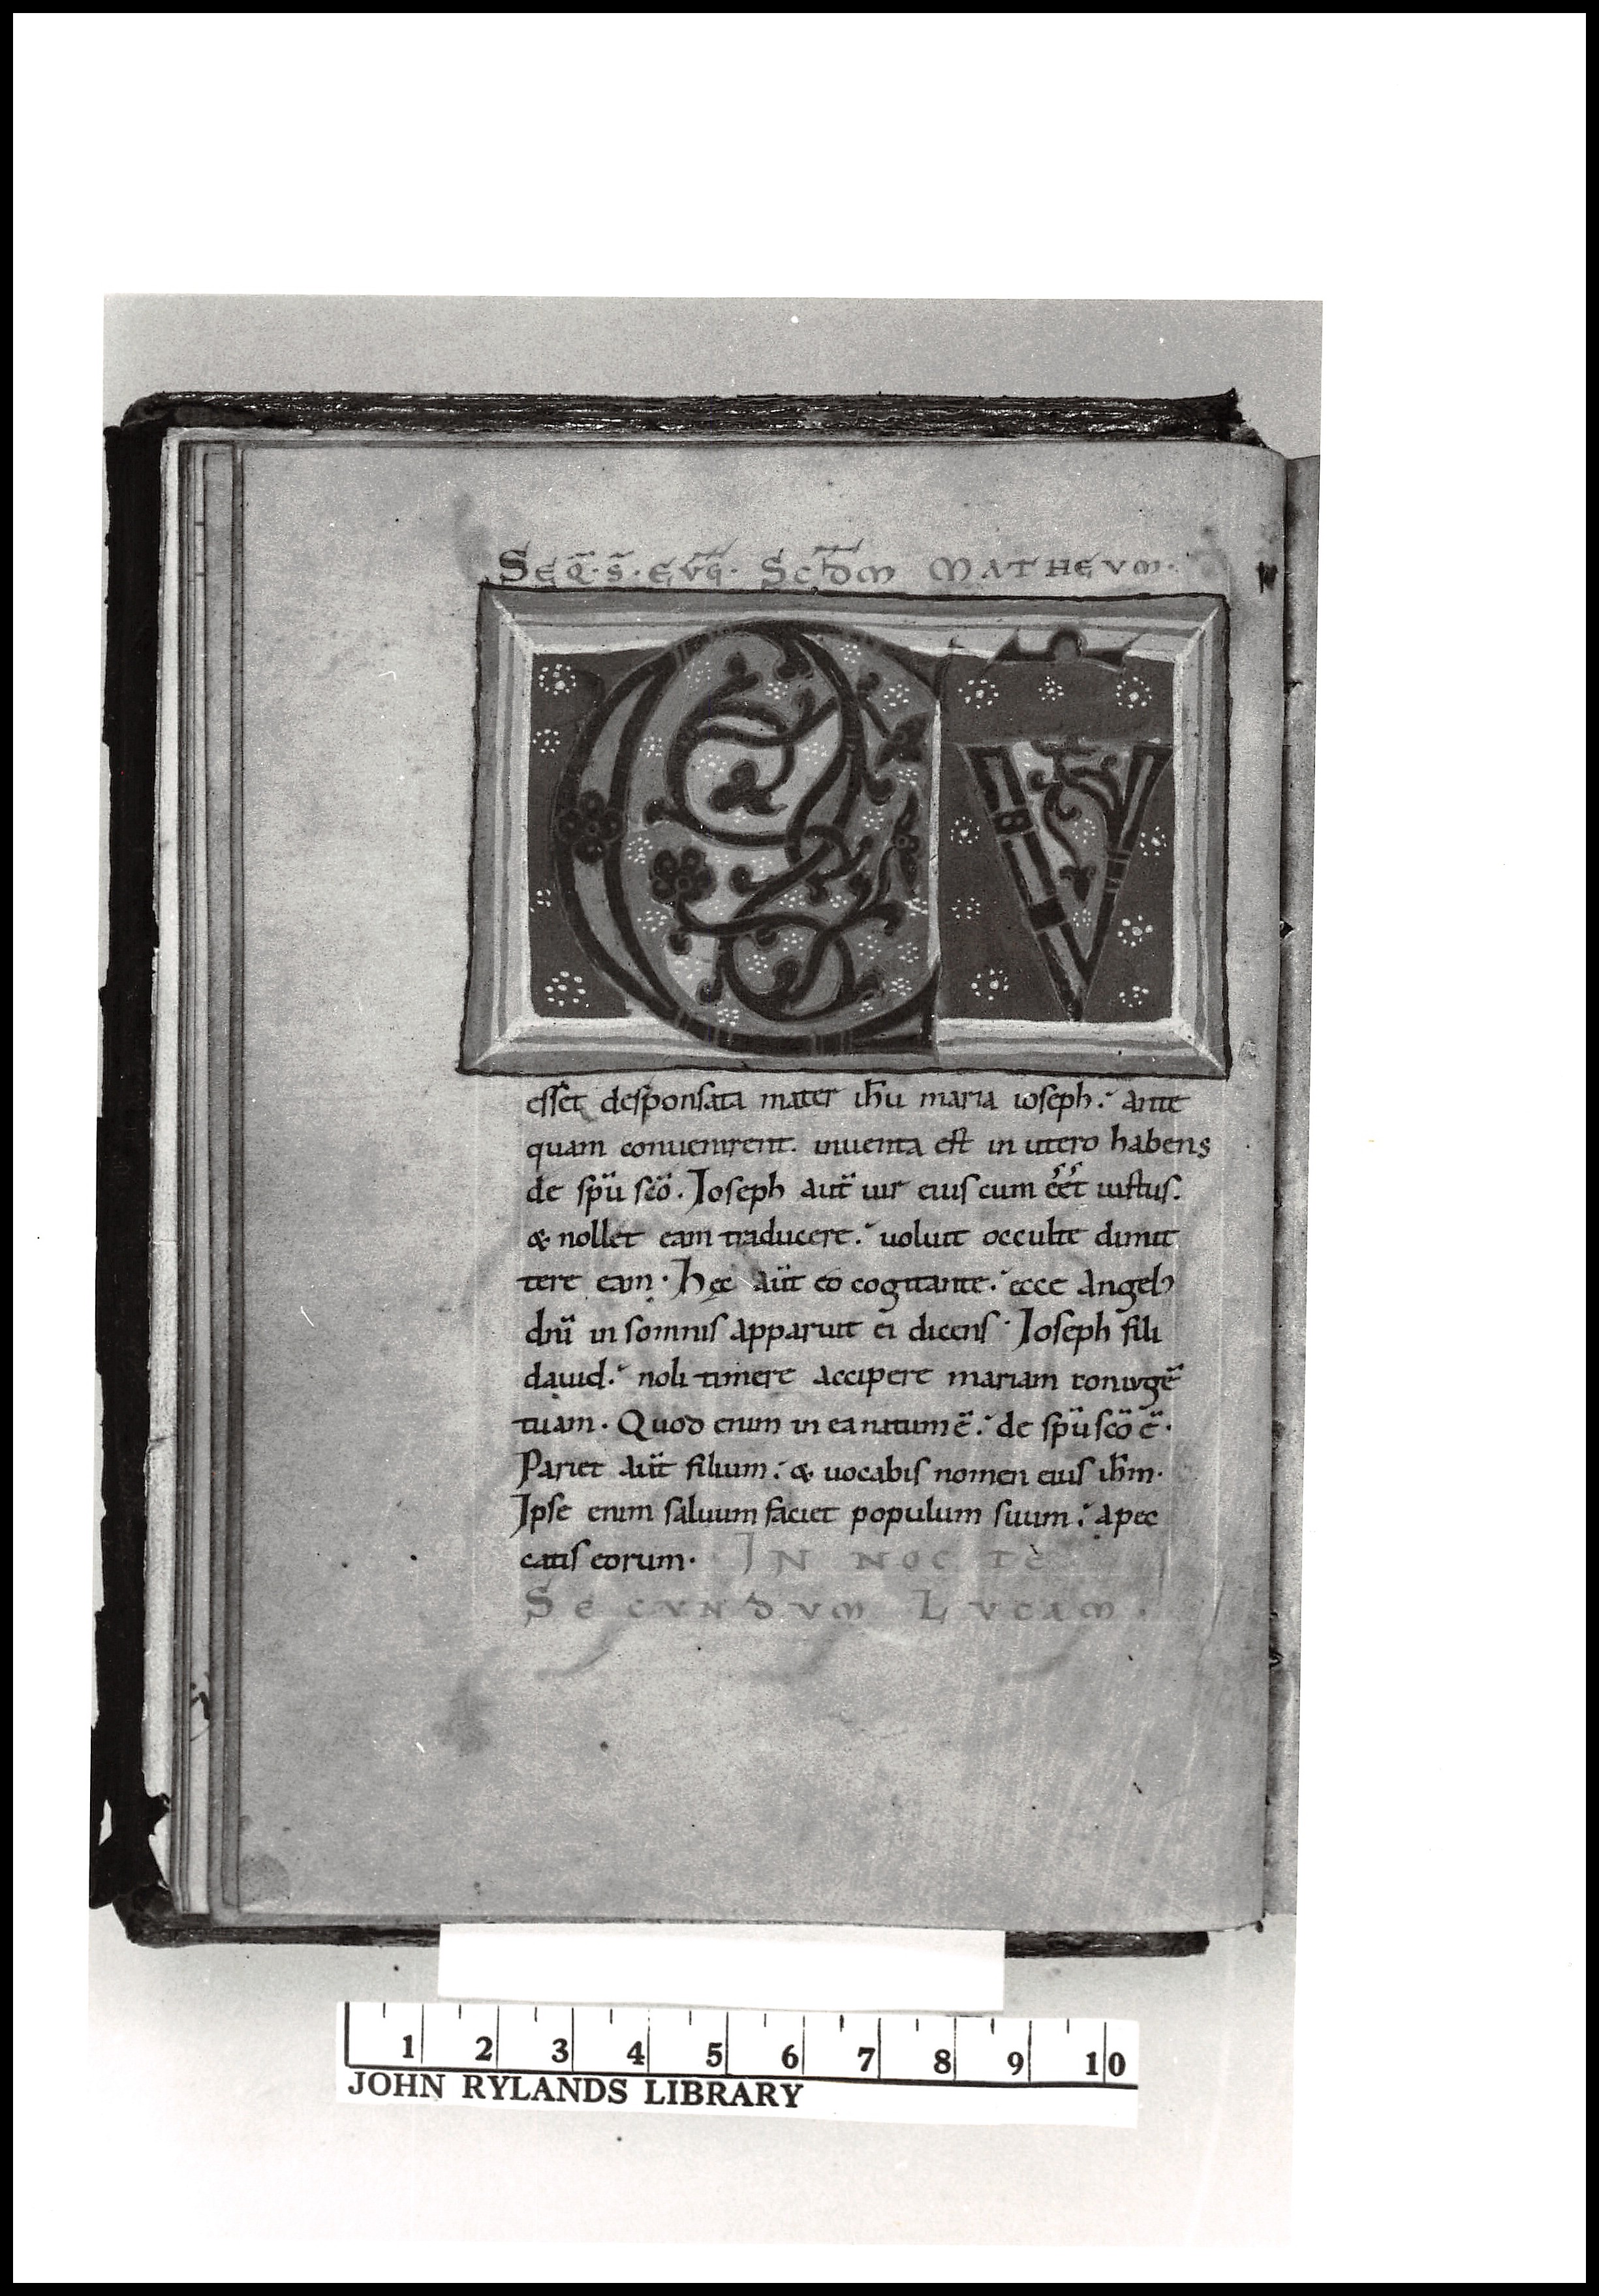 SEQ̄·S̄·EVḠ· SCDM MATHEVM·
CV̄
esset desponsata mater ih̄u maria ioseph·́ ante
quam conuenirent. inuenta est in utero habens
de sp̄u sc̄o. Ioseph aut̄ uir eius cum eēt iustus.
& nollet eam traducere·́ uoluit occulte dimit
tere eam· hęc aut̄ eo cogitante·́ ecce angelꝰ
dn̄i in somnis apparuit ei dicens· Ioseph fili
dauid·́ noli timere accipere mariam coniugē
tuam· Quod enim in ea natum ē·́ de sp̄u sc̄o ē·
Pariet aut̄ filium·́ & uocabis nomen eius ih̄m·
Ipse enim saluum faciet populum suum·́ apec
catis eorum· IN NOCTE
SECVNDVM LVCAM·
1 2 3 4 5 6 7 8 9 10
JOHN RYLANDS LIBRARY